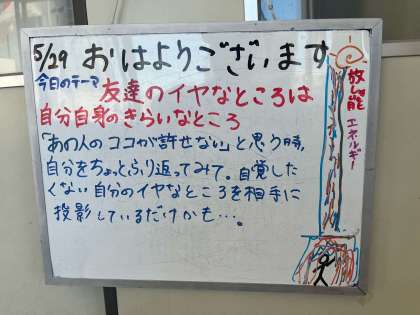 5/29 おはようございます
今日のテーマ 友達のイヤなところは
自分自身のきらいなところ
「あの人のココが許せない」と思う時、
自分をちょっとふり返ってみて。自覚した
くない自分のイヤなところを相手に
投影しているだけかも…。
放射能
エネルギー